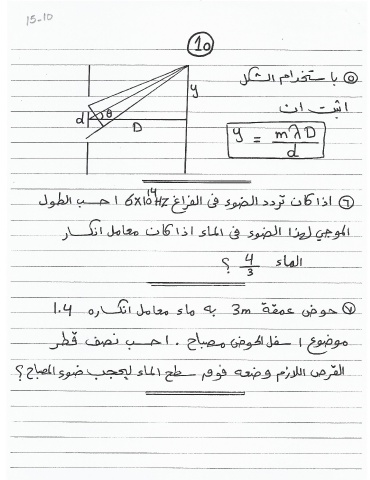 15-10
10
٥ باستخدام الشكل
اثبت ان
y = mλD / d
y
d
θ
D
٦ اذا كان تردد الضوء في الفراغ 6x10¹⁴Hz احسب الطول
الموجي لهذا الضوء في الماء اذا كان معامل انكسار
الماء 4/3 ؟
٧ حوض عمقة 3m به ماء معامل انكساره 1.4
موضوع اسفل الحوض مصباح . احسب نصف قطر
القرص اللازم وضعه فوق سطح الماء ليحجب ضوء المصباح ؟